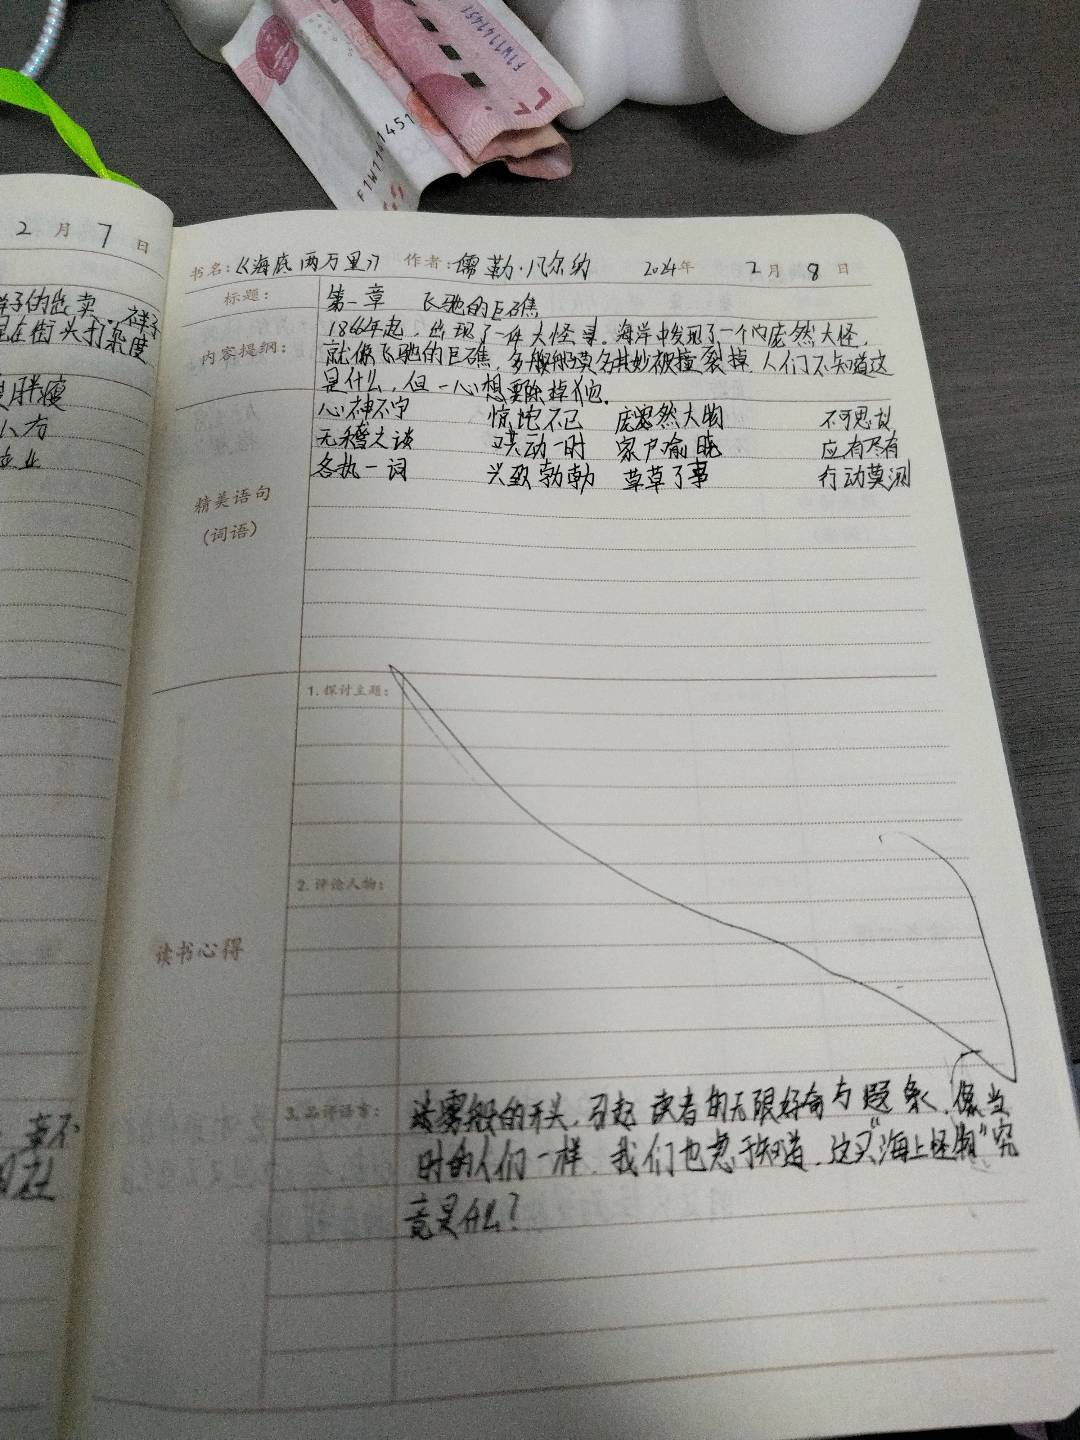 F1W1141451
F1W1141451
2月7日
书名:《海底两万里》 作者:儒勒·凡尔纳 2024年 2月 8日
标题: 第一章 飞驰的巨礁
1866年起,出现了一件大怪事。海洋中发现了一个内庞然大怪,
内容提纲: 就像飞驰的巨礁,多艘船莫名其妙被撞裂掉,人们不知道这
是什么,但一心想要除掉它。
心神不宁 惊诧不已 庞然大物 不可思议
无稽之谈 哄动一时 家户喻晓 应有尽有
各执一词 兴致勃勃 草草了事 行动莫测
精美语句
(词语)
1.探讨主题:
2.评论人物:
读书心得
3.品评语言: 迷雾般的开头,引起读者的无限好奇与想象,像当
时的人们一样,我们也急于知道,这只"海上怪物"究
竟是什么?